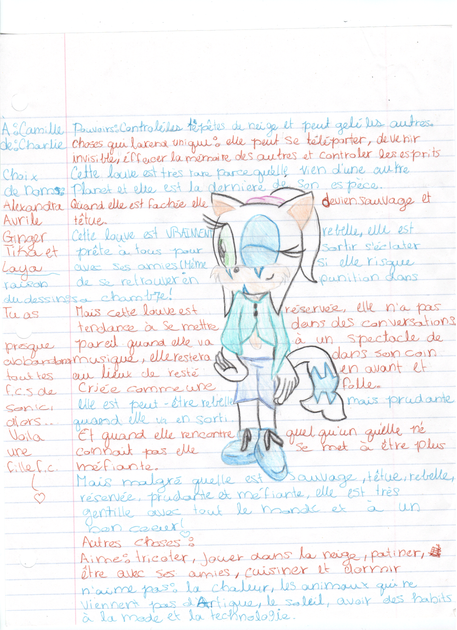 À: Camille
de: Charlie
Choix
de noms:
Alexandra
Avrile
Ginger
Tika et
Laya
raison
du dessins:
Tu as
presque
abandonné
touttes
f.c.s de
sonic,
alors...
Voila
une
fille f.c.
!
♡
Pouvoirs: Controlé les tepêtes de neige et peut gelé les autres.
Choses qui la rend unique: elle peut se téléporter, devenir
invisible, éffacer la mémoire des autres et controler les esprits
Cette louve est tres rare parce quelle vien d'une autre
Planet et elle est la dernière de son espèce.
Quand elle est fachée elle devien sauvage et
têtue.
Cette louve est VRAIMENT rebelle, elle est
prête à tous pour sortir s'éclater
avec ses amies (Même si elle risque
de se retrouver en punition dans
sa chambre!
Mais cette louve est réservée, elle n'a pas
tendance à se mettre dans des conversations
pareil quand elle va à un spectacle de
musique, elle restera dans son coin
au lieux de resté en avant et
Criée comme une folle.
elle est peut-être rebelle mais prudante
quand elle va en sorti.
Et quand elle rencontre quel qu'un qu'elle né
connait pas elle se met à être plus
méfiante.
Mais malgré quelle est sauvage, têtue, rebelle,
réservée, prudante et méfiante, elle est très
gentille avec tout le monde et à un
bon coeur!
Autres choses:
Aime: tricoter, jouer dans la neige, patiner,
être avec ses amies, cuisiner et dormir
n'aime pas: la chaleur, les animaux qui ne
viennent pas d'Artique, le soleil, avoir des habits
à la mode et la technologie.